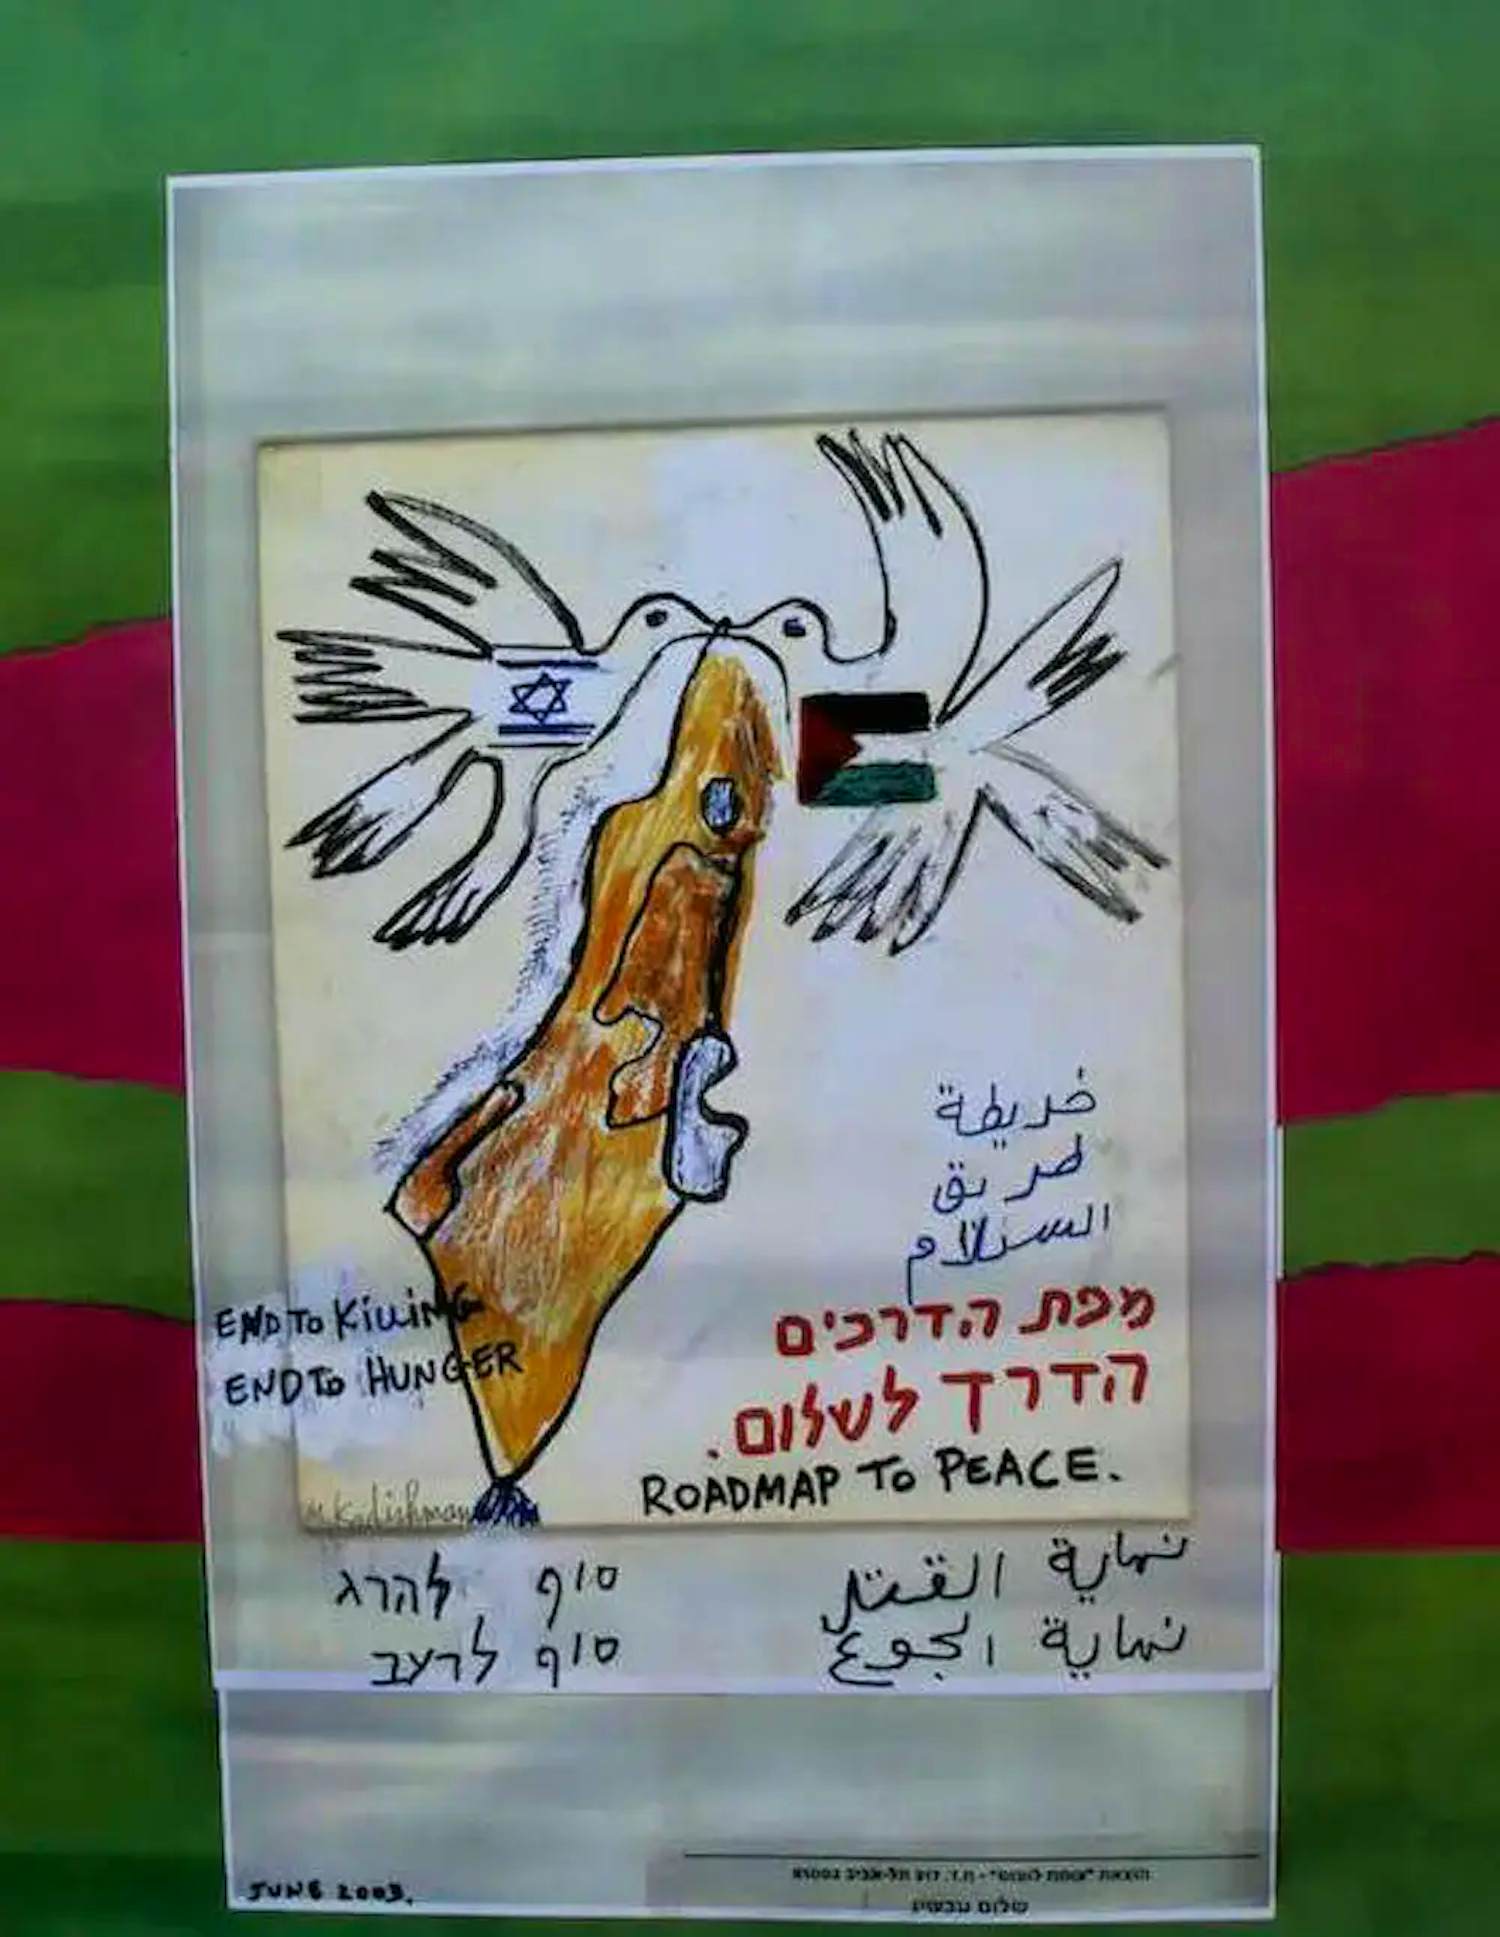 خريطة
طريق
السلام
מפת הדרכים
הדרך לשלום.
ROADMAP TO PEACE.
END TO KILLING
END TO HUNGER
M. Kadishman
סוף להרג
סוף לרעב
نهاية القتل
نهاية الجوع
JUNE 2003.
שלום עכשיו